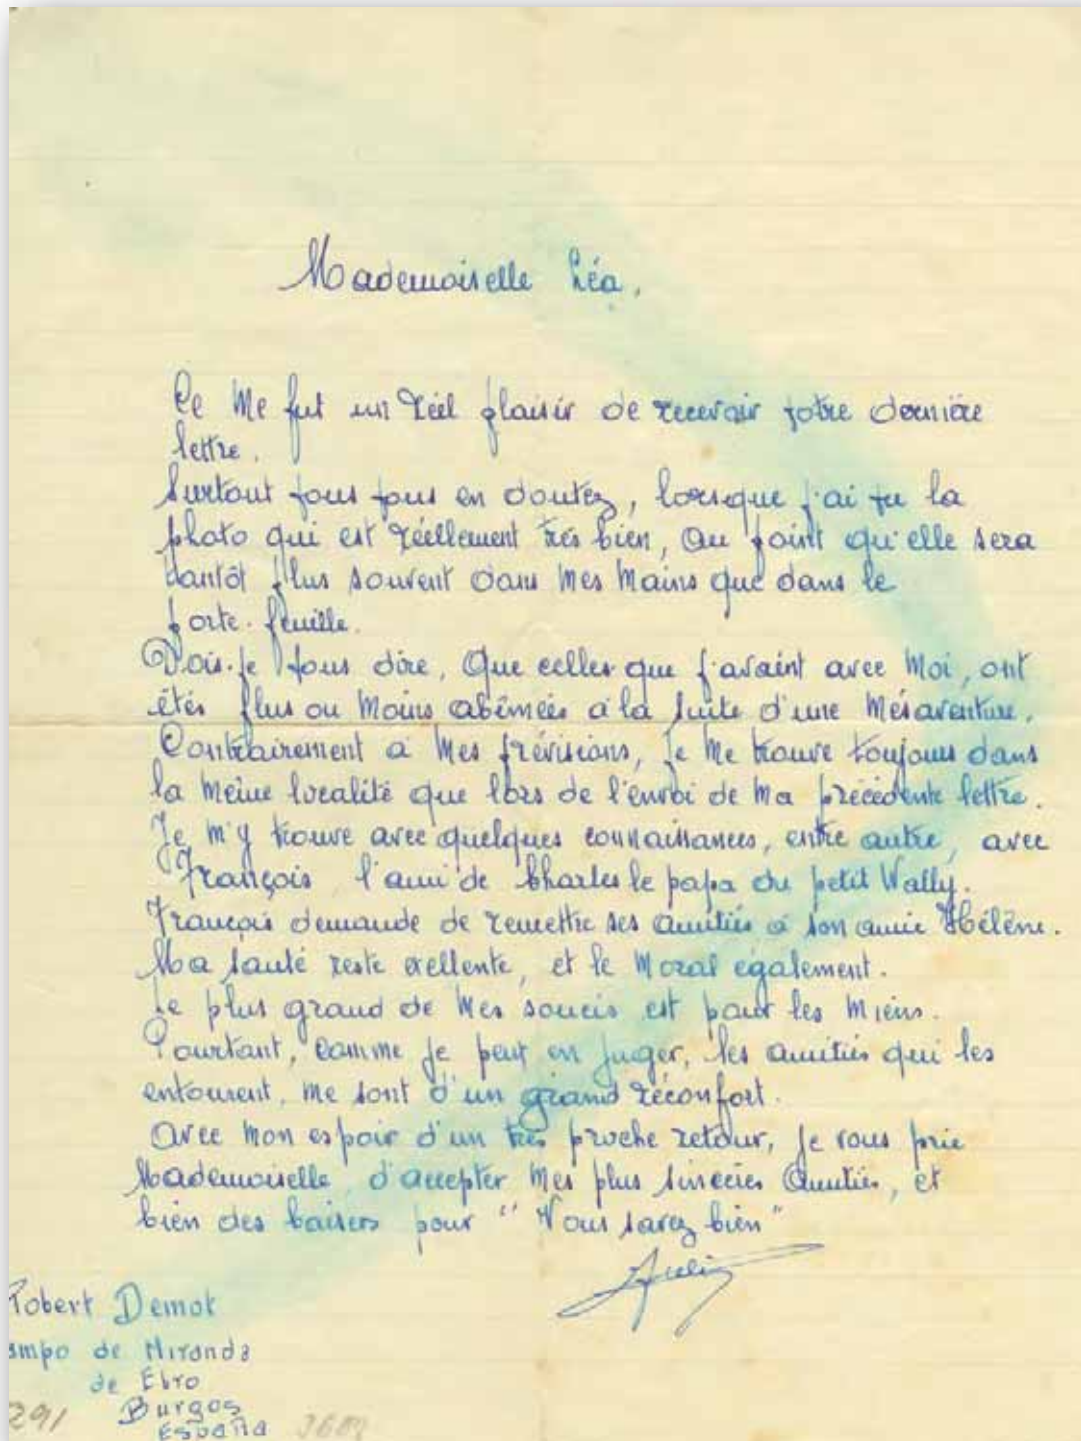 Mademoiselle Léa,
Ce me fut un réel plaisir de recevoir votre dernière
lettre.
Surtout vous vous en doutez, lorsque j'ai vu la
photo qui est réellement très bien, au point qu'elle sera
tantôt plus souvent dans mes mains que dans le
porte-feuille.
Dois-je vous dire, que celles que j'avaint avec moi, ont
étés plus ou moins abîmées à la suite d'une mésaventure.
Contrairement a mes prévisions, je me trouve toujours dans
la même localité que lors de l'envoi de ma précédente lettre.
Je m'y trouve avec quelques connaissances, entre autre, avec
François l'ami de Charles le papa du petit Wally.
François demande de remettre ses amitiés a son amie Hélène.
Ma santé reste exellente, et le moral également.
Le plus grand de mes soucis est pour les miens.
Pourtant, comme je peut en juger, les amitiés qui les
entourent, me sont d'un grand réconfort.
Avec mon espoir d'un très proche retour, je vous prie
Mademoiselle d'accepter mes plus sincères amitiés, et
bien des baisers pour "Vous savez bien"
Robert Demot
ampo de Miranda
de Ebro
291 Burgos
España